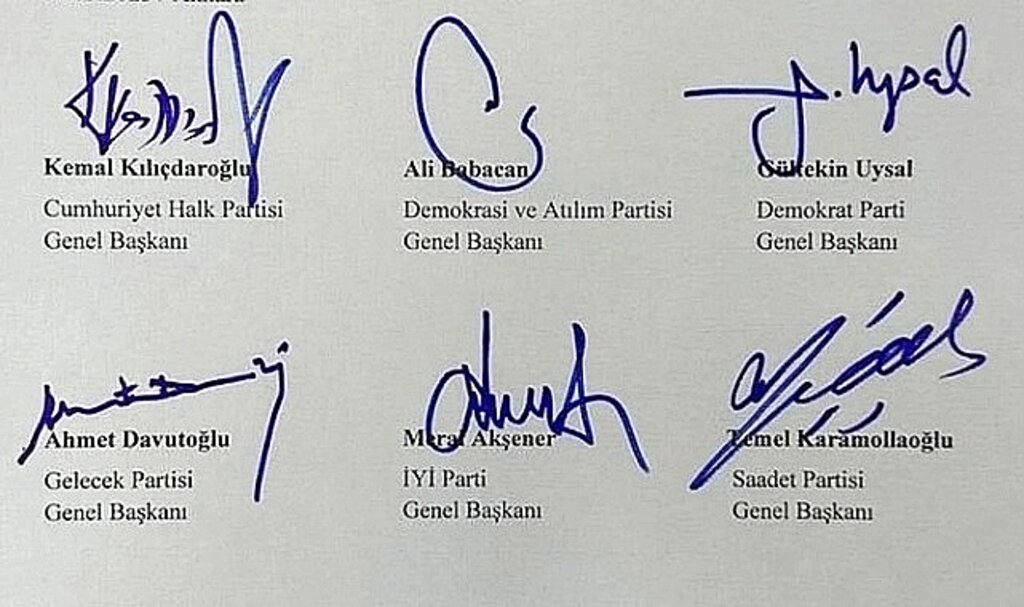 Kemal Kılıçdaroğlu
Cumhuriyet Halk Partisi
Genel Başkanı
Ali Babacan
Demokrasi ve Atılım Partisi
Genel Başkanı
Uysal
Gültekin Uysal
Demokrat Parti
Genel Başkanı
Ahmet Davutoğlu
Gelecek Partisi
Genel Başkanı
Meral Akşener
İYİ Parti
Genel Başkanı
Temel Karamollaoğlu
Saadet Partisi
Genel Başkanı